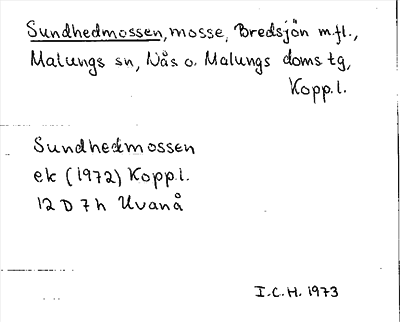 Sundhedmossen, mosse, Bredsjön m.fl.,
Malungs sn, Nås o. Malungs doms tg,
Kopp.l.
Sundhedmossen
ek (1972) Kopp.l.
12 D 7 h Uvanå
I.C.H. 1973